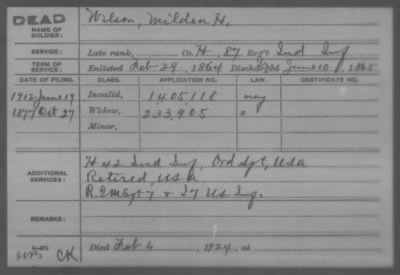 DEAD
NAME OF SOLDIER: Wilson, Milden H.
SERVICE: Late rank, Co. H, 87 Reg't Ind Inf
TERM OF SERVICE: Enlisted Feb 29, 1864 Discharged June 10, 1865
DATE OF FILING. CLASS. APPLICATION NO. LAW. CERTIFICATE NO.
1912 June 19 Invalid, 1405118 may
1877 Oct 27 Widow, 233,905 o
Minor,
ADDITIONAL SERVICES: H 42 Ind Inf, Ord Sgt, USA
Retired, USA
R.2MSgt 7 & I 7 US Inf.
REMARKS:
Died Feb 6, 1924, at
CK